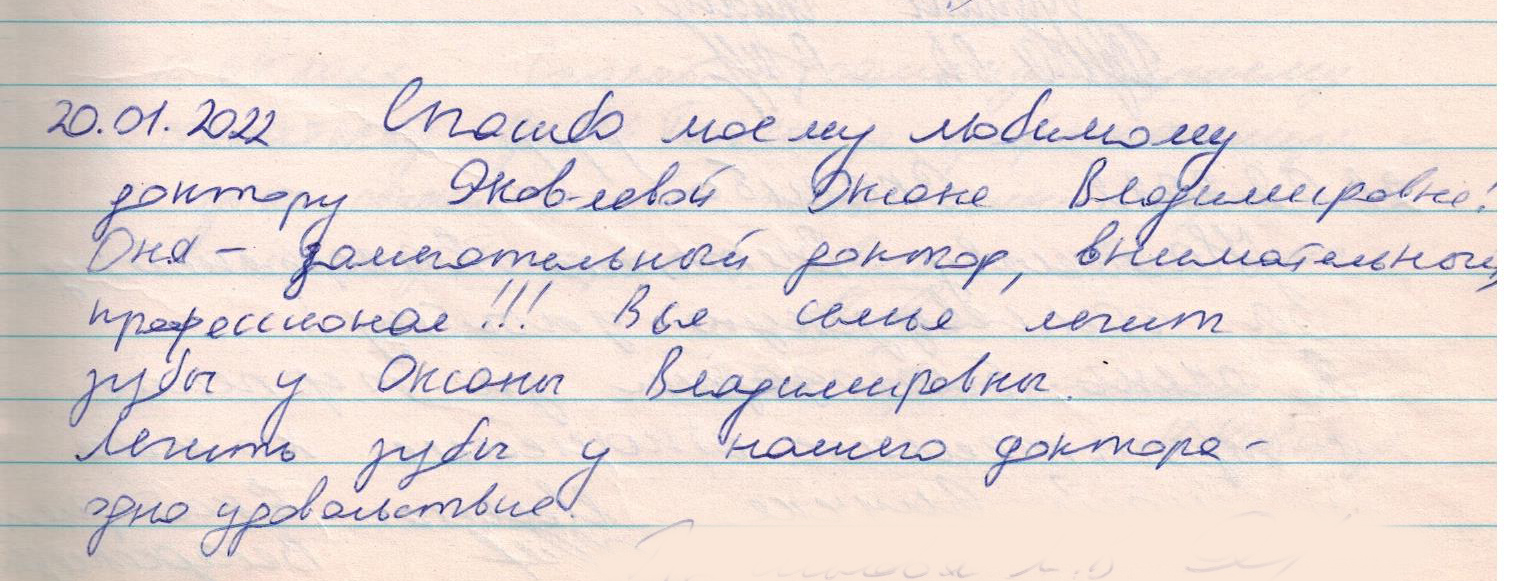 20.01.2022 Спасибо моему любимому
доктору Яковлевой Оксане Владимировне!
Она - замечательный доктор, внимательный,
профессионал!!! Вся семья лечит
зубы у Оксаны Владимировны.
Лечить зубы у нашего доктора -
одно удовольствие.